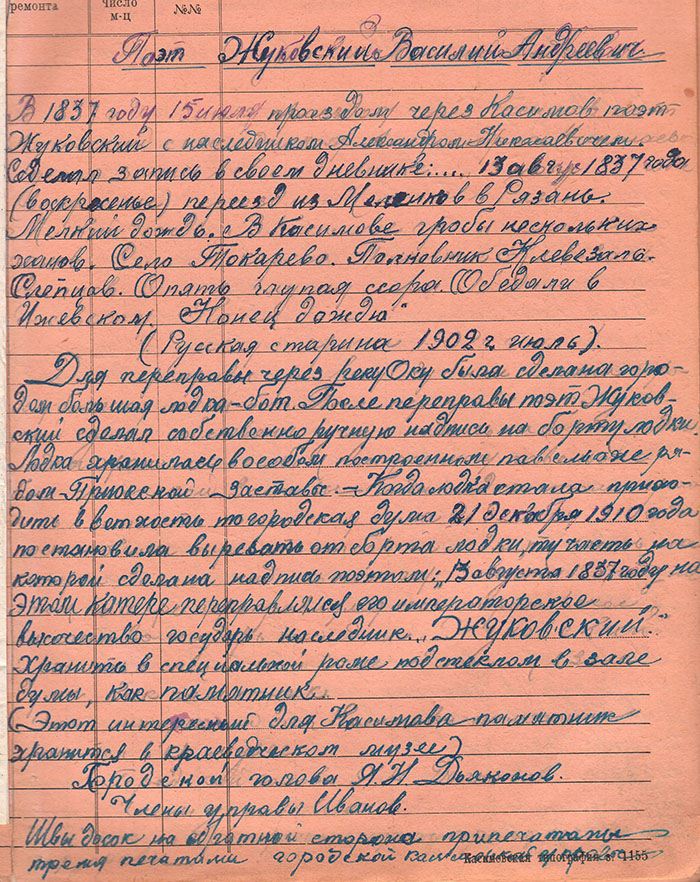 ремонта
число
м-ц
№№
Поэт Жуковский Василий Андреевич.
В 1837 году 15 июля проездом через Касимов поэт
Жуковский с наследником Александром Николаевичем.
Сделал запись в своем дневнике:.... 13 август 1837 года
(воскресенье) переезд из Меленков в Рязань.
Мелкий дождь. В Касимове гробы нескольких
ханов. Село Токарево. Полковник Клевезаль.
Слепцов. Опять глупая ссора. Обедали в
Ижевском. Конец дождю"
(Русская старина 1902 г июль).
Для переправы через реку Оку была сделана горо-
дом большая лодка-бот. После переправы поэт Жуков-
ский сделал собственно ручную надпись на борту лодки
Лодка хранилась в особом построенном павильоне ря-
дом Приокской заставы. - Когда лодка стала прихо-
дить в ветхость то городская дума 21 декабря 1910 года
постановила вырезать от борта лодки, ту часть на
которой сделана надпись поэтом: "13 августа 1837 году на
этом катере переправлялся его императорское
высочество государь наследник. "Жуковский."
Хранить в специальной раме под стеклом в зале
думы, как памятник.
(Этот интересный для Касимова памятник
хранится в краеведческом музее)
Городской голова А. Н. Дьяконов.
Члены управы Иванов.
Швы досок на обратной стороне припечатаны
тремя печатями городской
Касимовская типография з. 1155